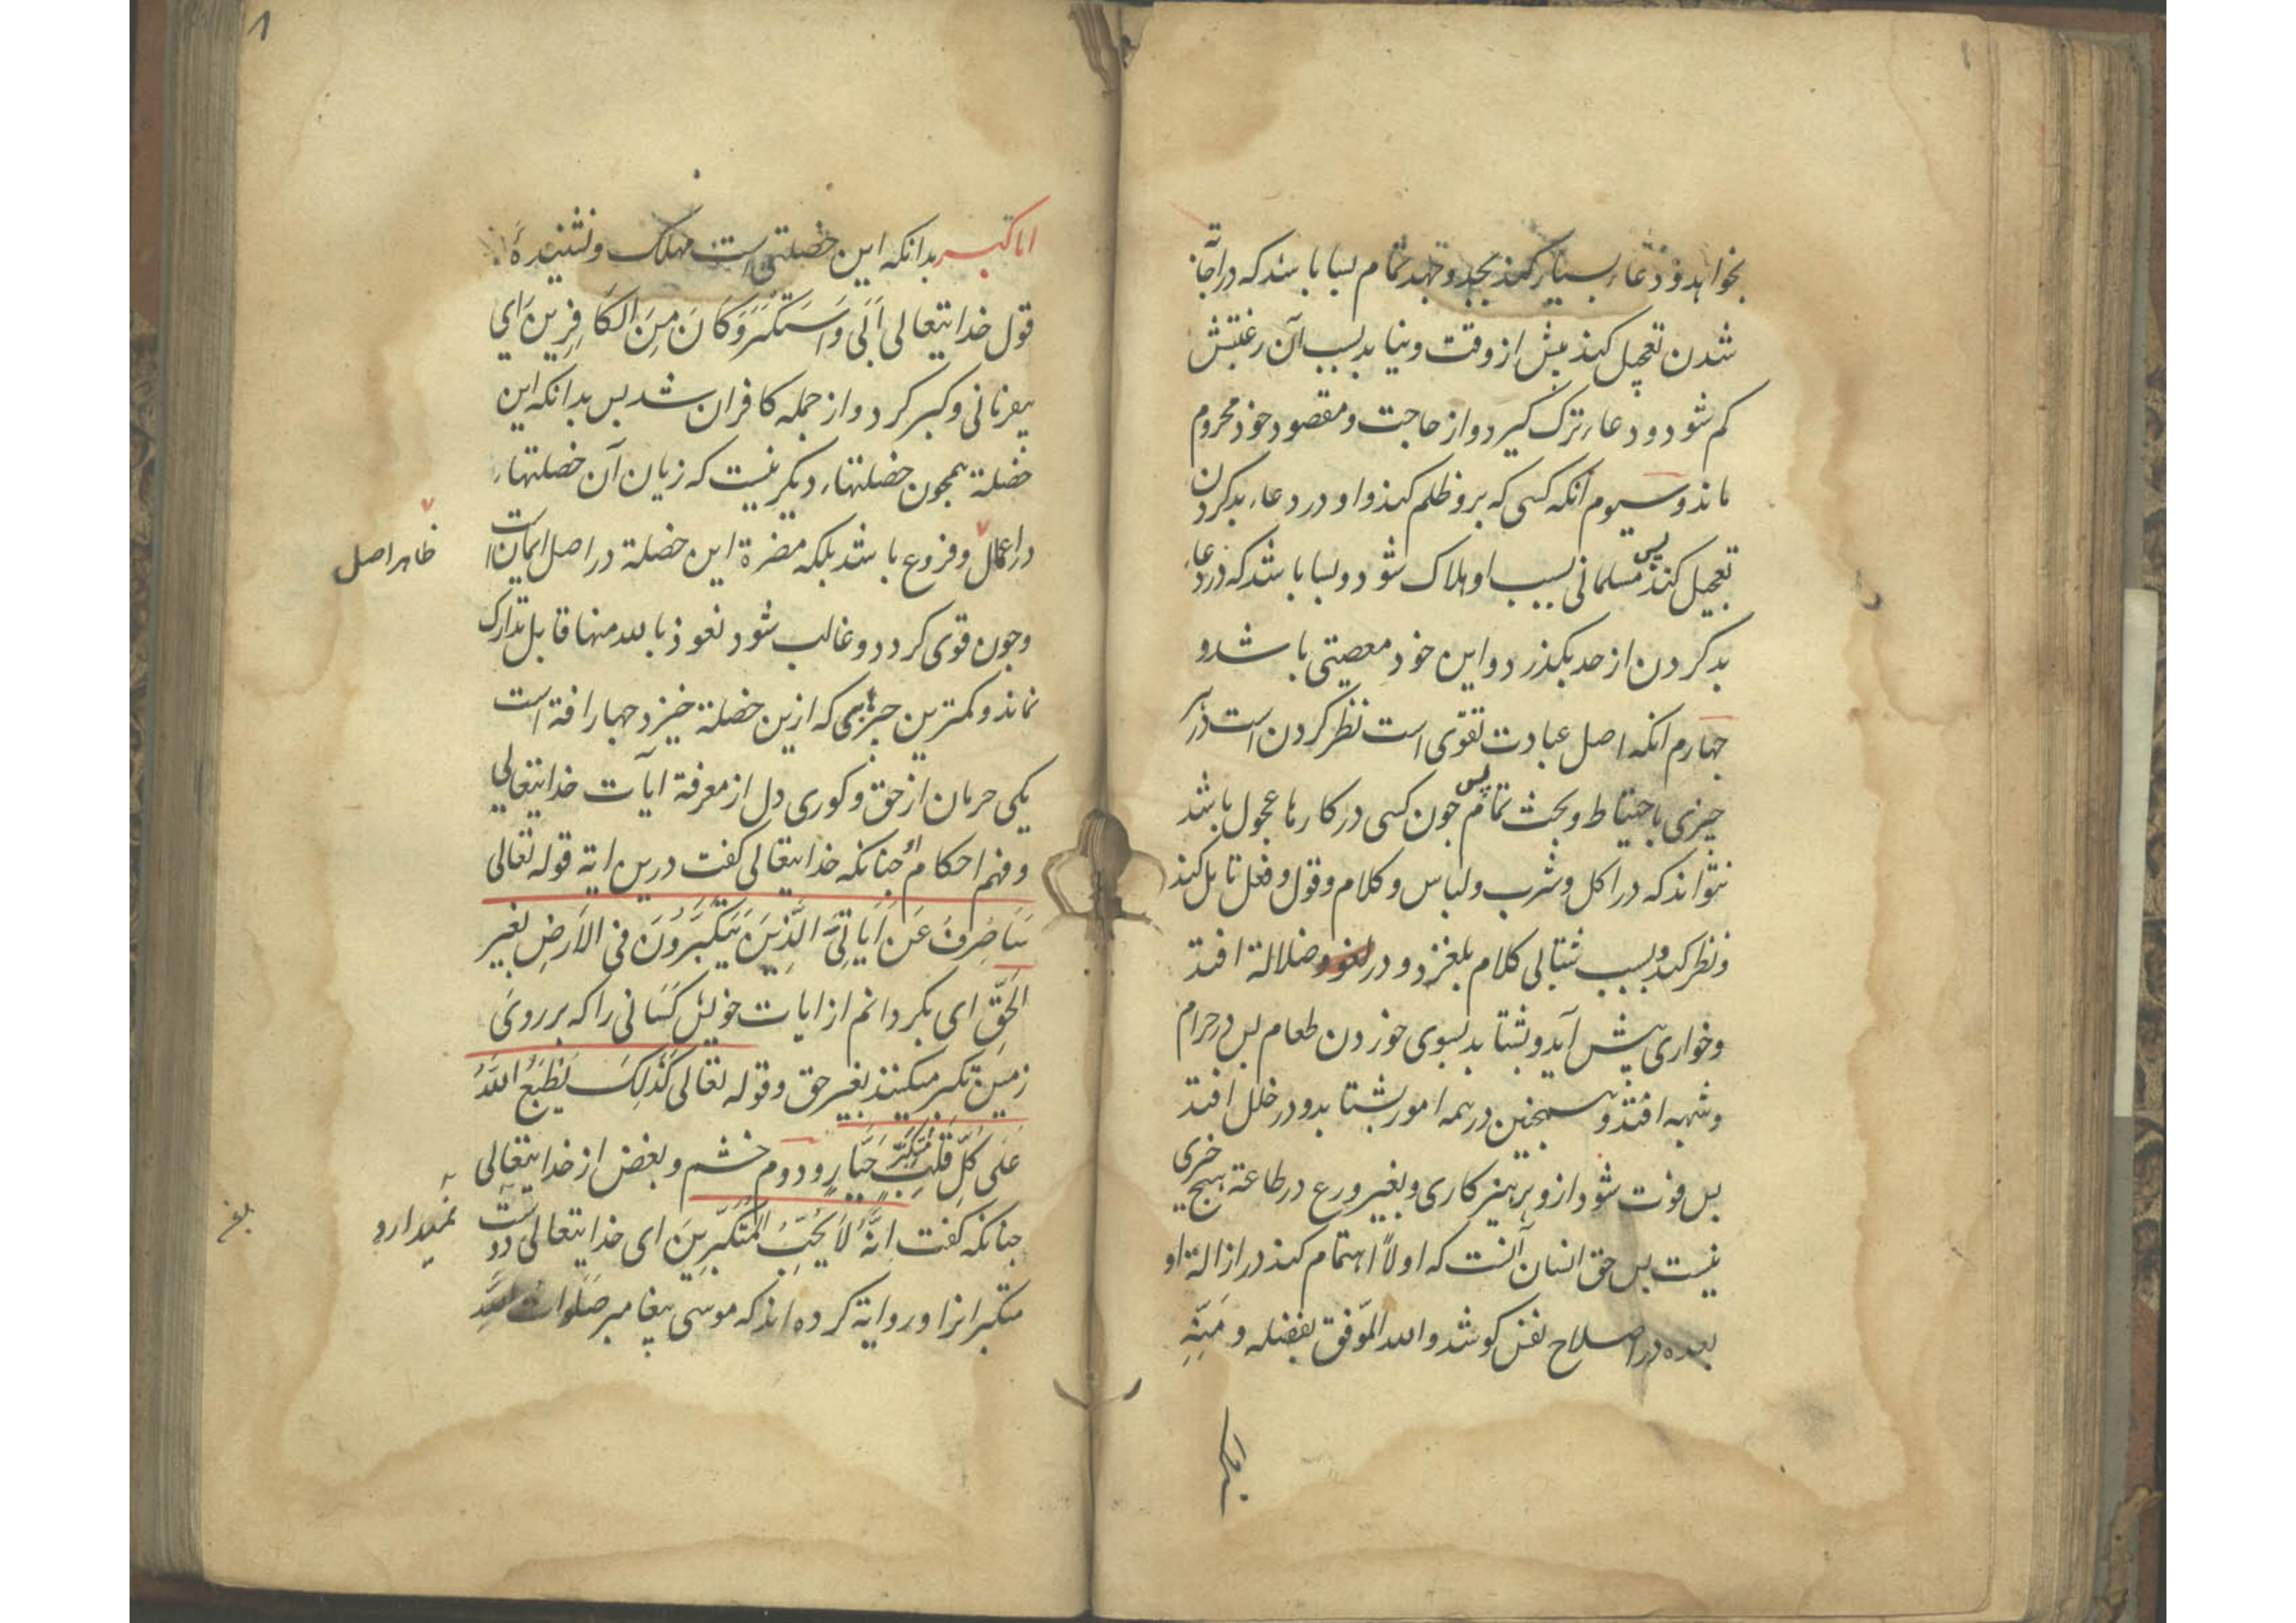 بخواهد و دعاء بسیار کند بجد و جهد تمام بسا باشد که در اجابة
شدن تعجیل کند پیش از وقت و نیابد بسبب آن رغبتش
کم شود و دعاء ترک گیرد و از حاجت و مقصود خود محروم
ماند و سیوم آنکه کسی که برو ظلم کند و او در دعاء بد کردن
تعجیل کند پس مسلمانی بسبب او هلاک شود و بسا باشد که در دعاء
بد کردن از حد بگذرد و این خود معصیتی باشد و
جهارم آنکه اصل عبادت تقوی است نظر کردن است در هر
جیزی باحتیاط و بحث تمام پس جون کسی در کارها عجول باشد
نتواند که در اکل و شرب و لباس و کلام و قول و فعل تامل کند
و نظر کند و بسبب شتابی کلام بلغزد و در لغو و ضلالة افتد
و خواری پیش آید و بشتابد بسوی خوردن طعام پس در حرام
و شبهه افتد و همجنین در همه امور بشتابد و در خلل افتد
پس فوت شود ازو پرهیزکاری و بغیر ورع در طاعة هیج خیری
نیست پس حق انسان آنست که اولاً اهتمام کند در ازالة او
بعده در اصلاح نفس کوشد و الله الموفق بفضله و مَنِّهِ
اما کبر بدانکه این خصلتی است مهلک و نشنیدهٔ
قول خدایتعالی اَبَی وَ اسْتَکْبَرَ وَ کَانَ مِنَ الکَافِرِینَ ای
بیفرمانی و کبر کرد و از جمله کافران شد پس بدانکه این
خصلة همجون خصلتهاء دیگر نیست که زیان آن خصلتهاء
در اعمال و فروع باشد بلکه مضرة این خصلة در اصل ایمان است
ظاهر اصل
و جون قوی گردد و غالب شود نعوذ بالله منها قابل تدارک
نماند و کمترین جیزی که ازین خصلة خیزد جهار افة است
یکی حرمان از حق و کوری دل از معرفة آیات خدایتعالی
و فهم احکام او جنانکه خدایتعالی کفت درین ایة قوله تعالی
سَاَصْرِفُ عَنْ اَیَاتِیَ الَّذِینَ یَتَکَبَّرُونَ فِی الْاَرْضِ بِغَیْرِ
الحَقِّ ای بکردانم از ایات خویش کسانی را که بر روی
زمین تکبر میکنند بغیر حق و قوله تعالی کَذٰلِکَ یَطْبَعُ اللّٰهُ
عَلَی کُلِّ قَلْبِ مُتَکَبِّرٍ جَبَّارٍ و دوم خشم و بغض از خدایتعالی
جنانکه کفت اِنَّهُ لَا یُحِبُّ الْمُتَکَبِّرِینَ ای خدایتعالی دوست
نمیدارد
متکبرانرا و روایة کرده اند که موسی پیغامبر صلوات الله